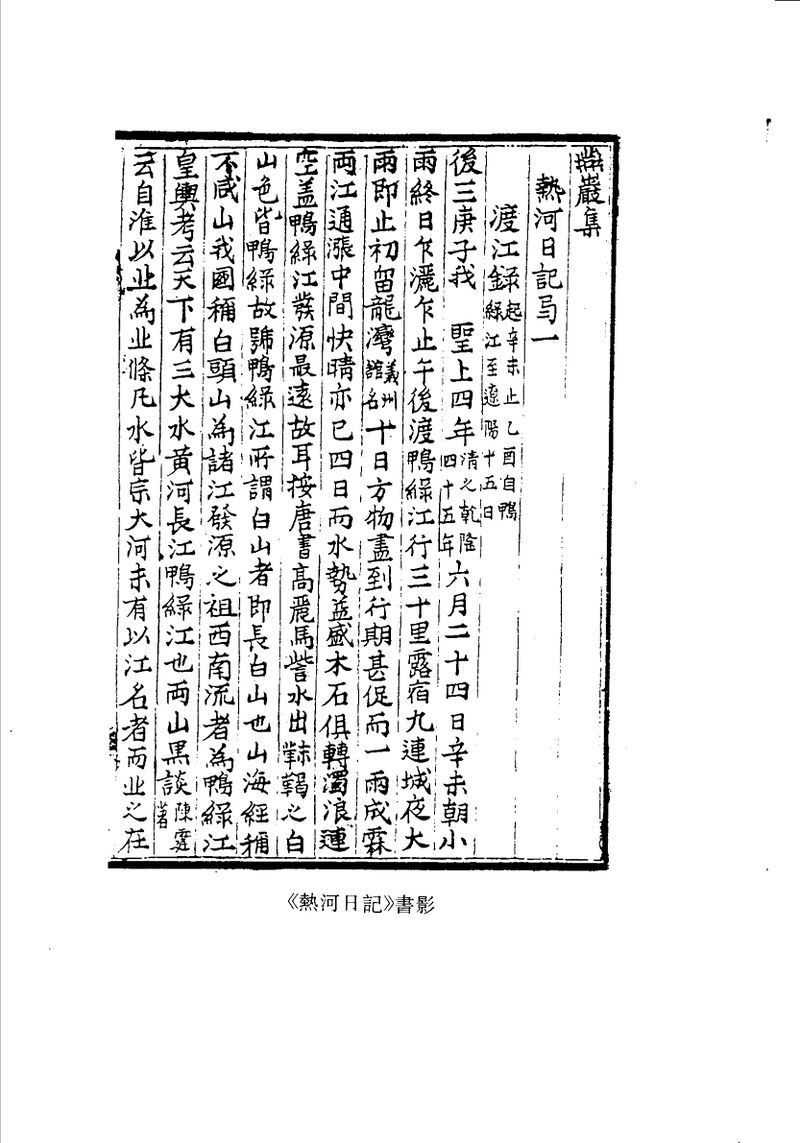 巖集
熱河日記 一
渡江錄起辛未止乙酉自鴨綠江至遼陽十五日
後三庚子我 聖上四年清之乾隆四十五年六月二十四日辛未朝小
雨終日乍灑乍止午後渡鴨綠江行三十里露宿九連城夜大
雨即止初留龍灣義州館名十日方物盡到行期甚促而一雨成霖
両江通漲中間快晴亦已四日而水勢益盛木石俱轉濁浪連
空盖鴨綠江發源最遠故耳按唐書高麗馬訾水出靺鞨之白
山色皆鴨綠故號鴨綠江所謂白山者即長白山也山海經稱
不咸山我國稱白頭山為諸江發源之祖西南流者為鴨綠江
皇輿考云天下有三大水黃河長江鴨綠江也両山墨談陳霆著
云自淮以北為北條凡水皆宗大河未有以江名者而北之在
《熱河日記》書影